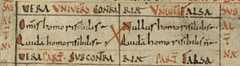 UERA UNIVERS CONTRA RIA UNIVERS FALSA
Omnis homo risibilis Nullus homo risibilis
Quidā homo risibilis homo risibilis
UERA PART SUBCONTRA RIA PART FALSA